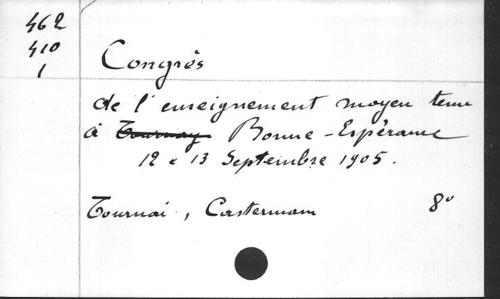 462
410
1
Congrès
de l'enseignement moyen tenu
à Tournay Bonne-Espérance
12 e 13 Septembre 1905.
Tournai, Casterman 8°